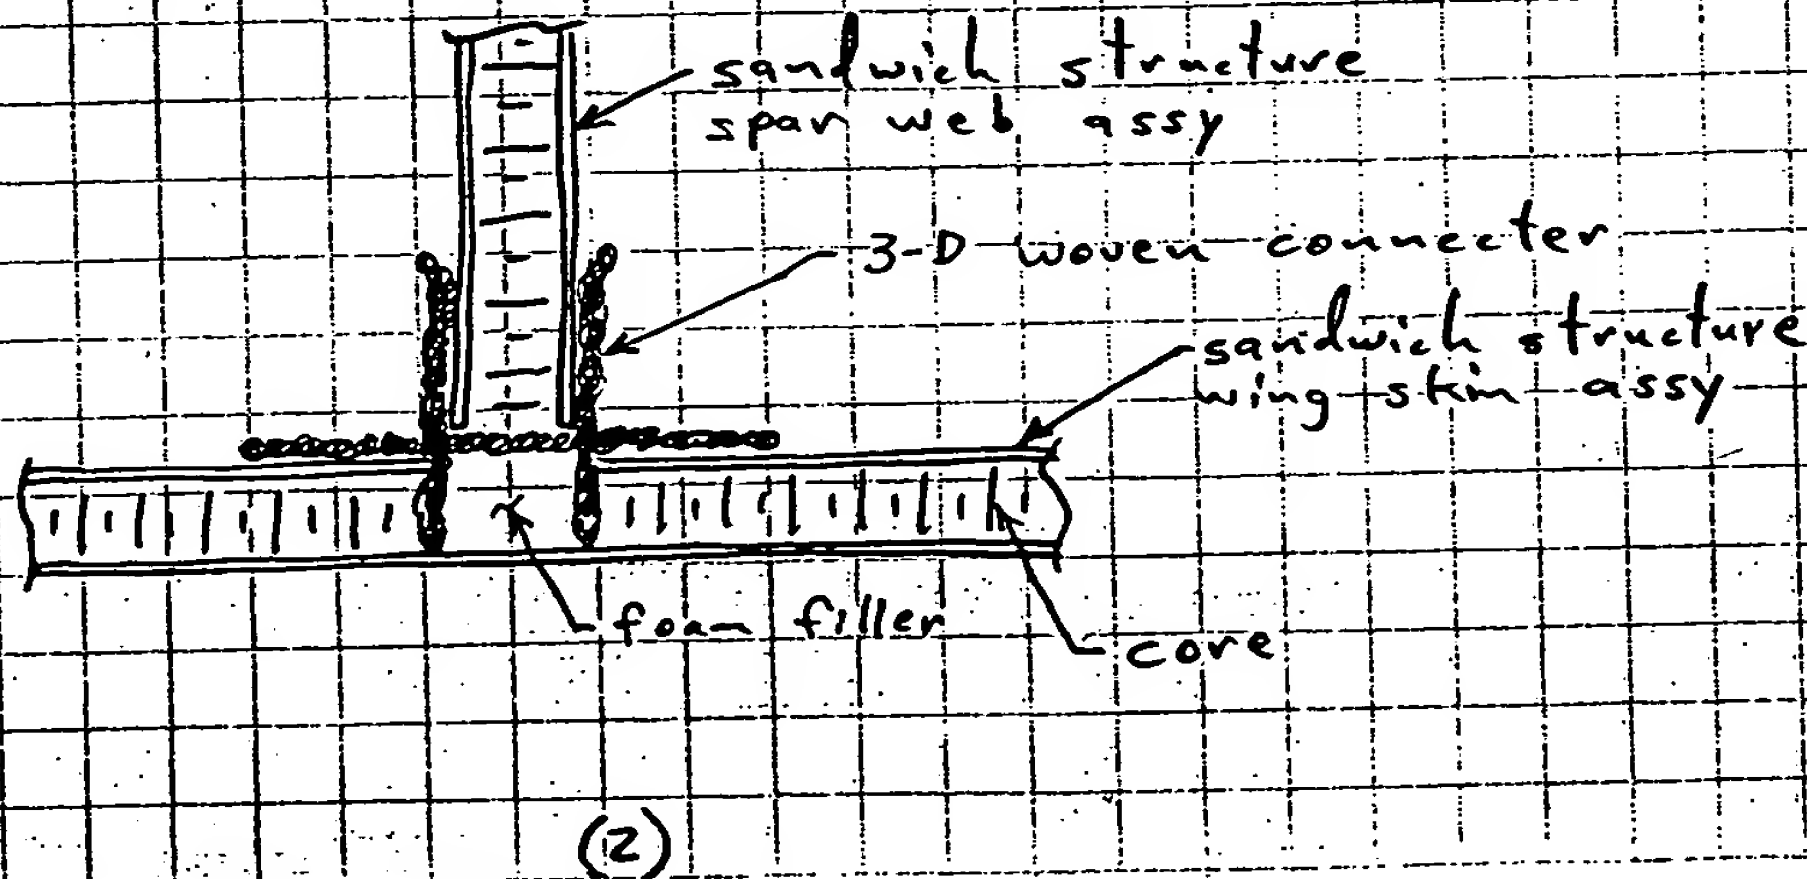 sandwich structure
spar web assy
3-D woven connecter
sandwich structure
wing skin assy
foam filler
core
(2)